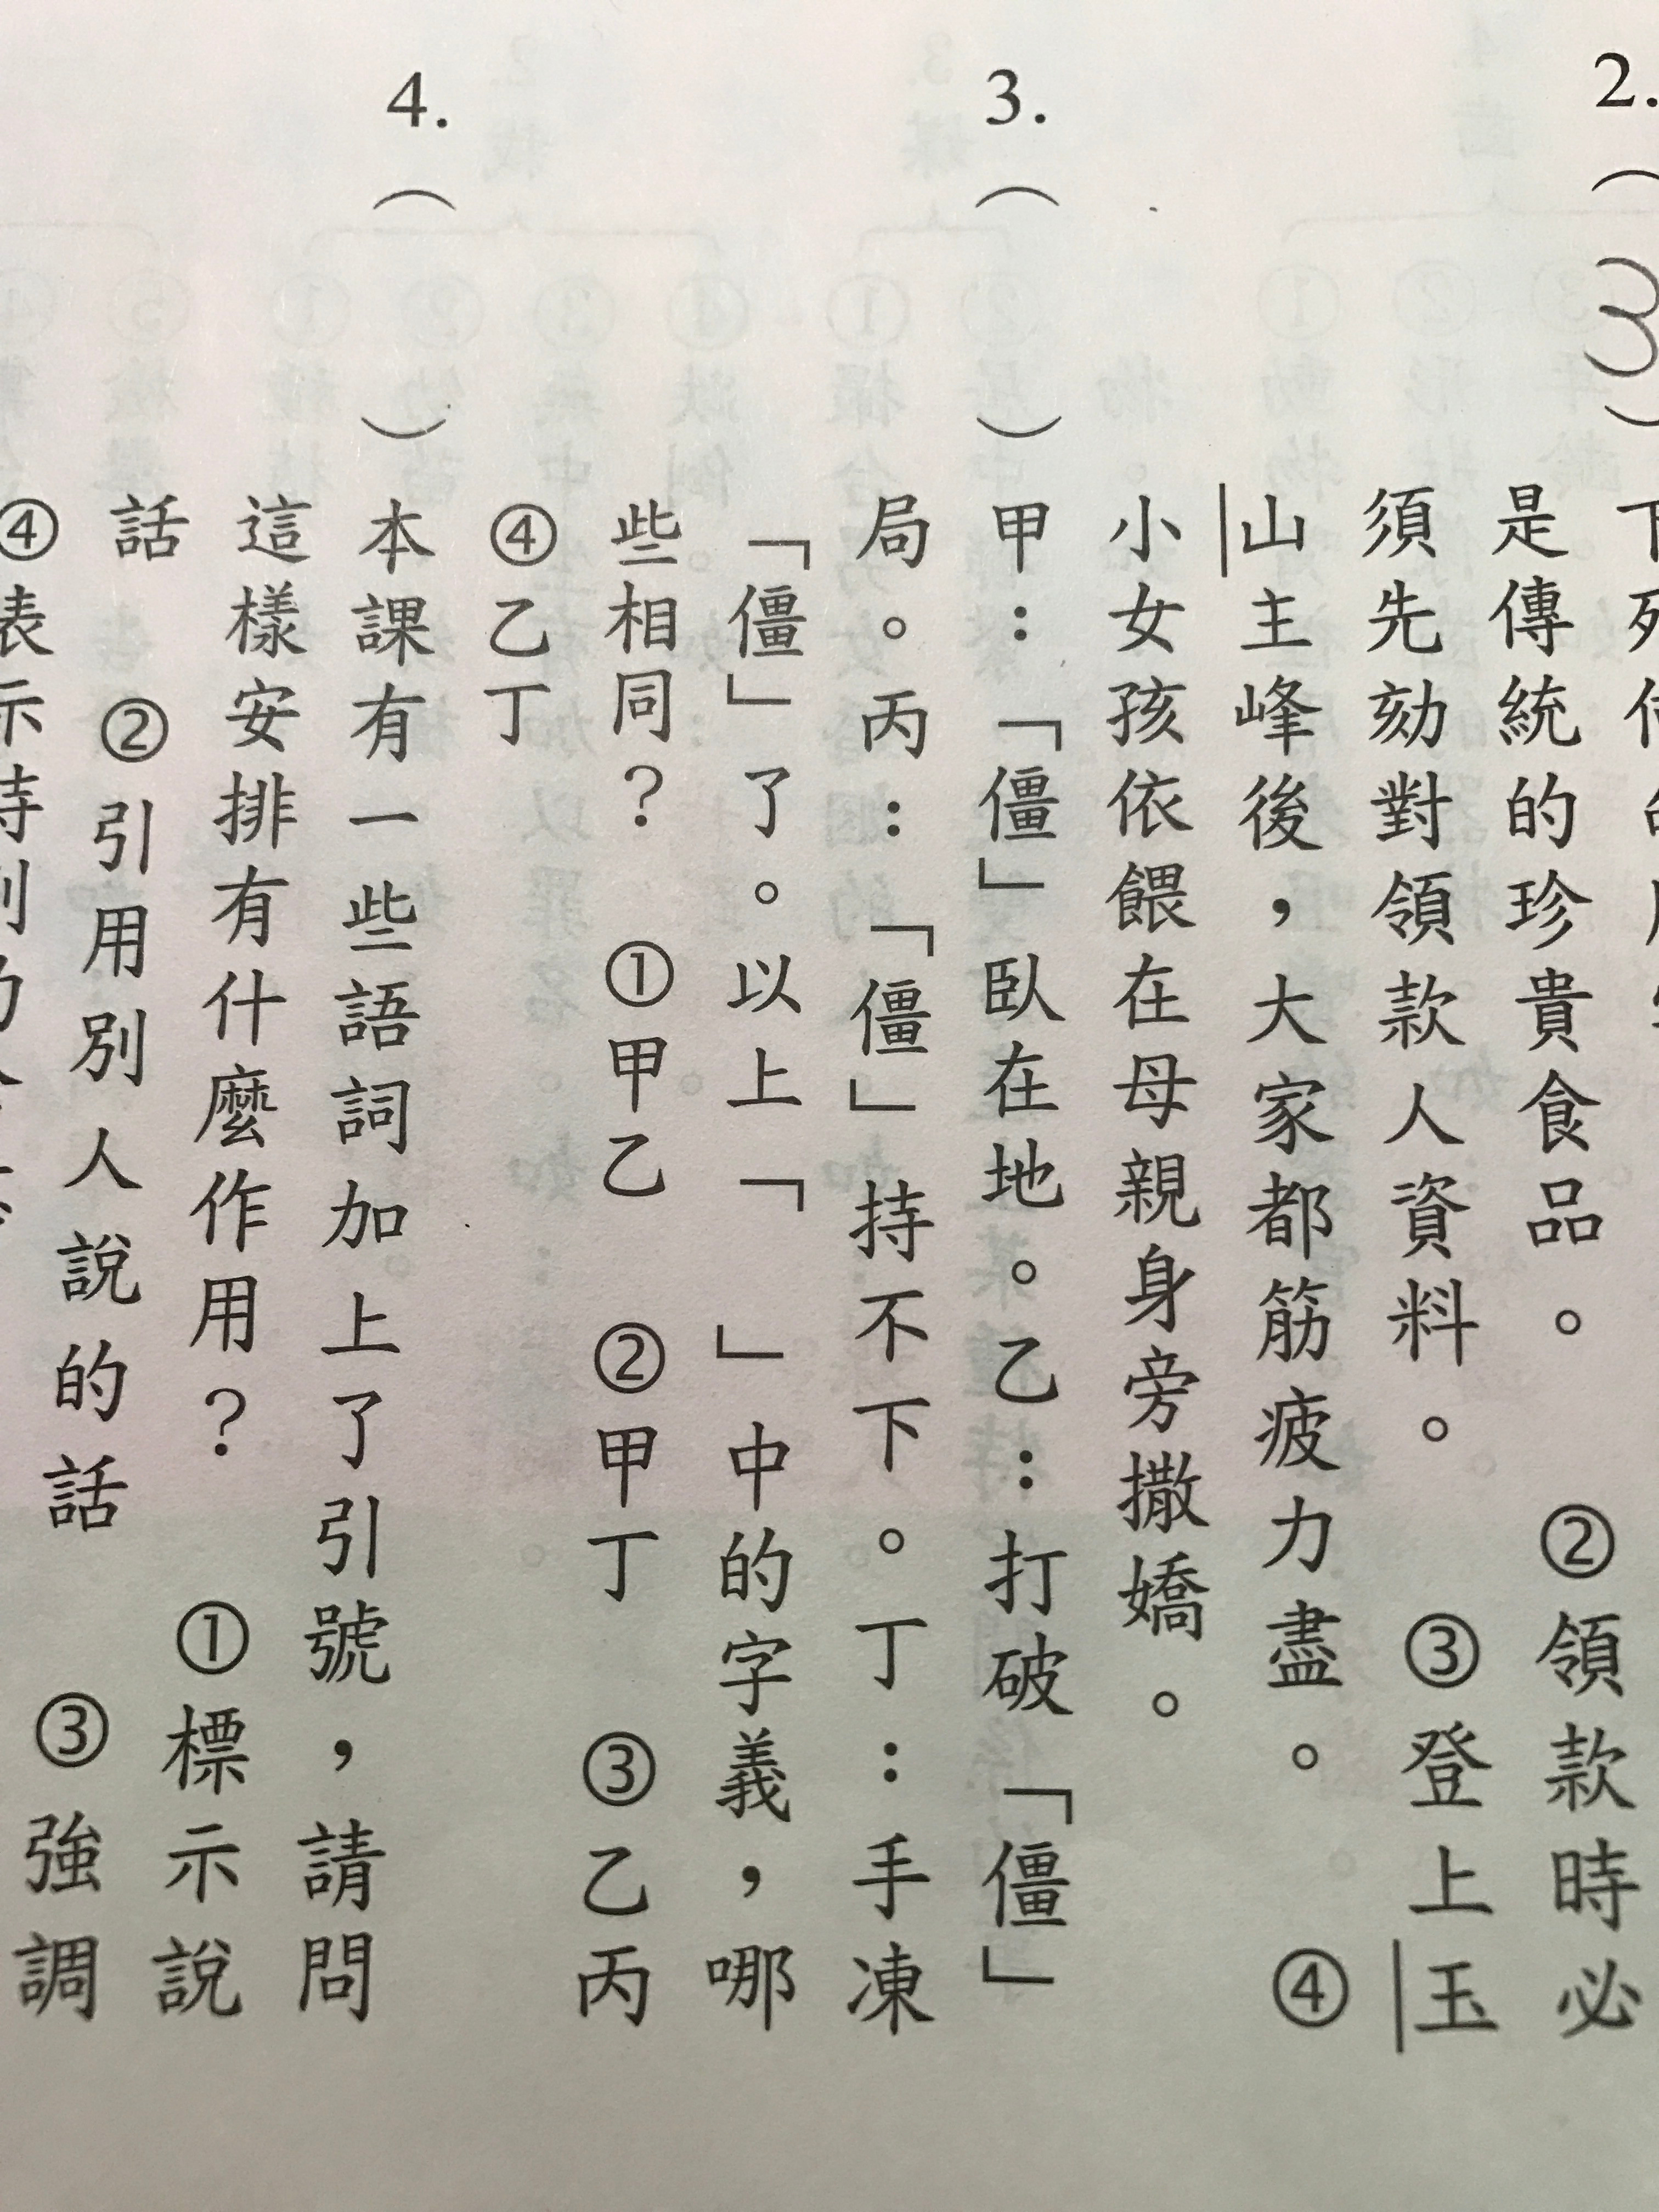 2.（3）
是傳統的珍貴食品。　②領款時必
須先劾對領款人資料。　③登上玉
山主峰後，大家都筋疲力盡。　④
小女孩依餵在母親身旁撒嬌。
3.（　）甲：「僵」臥在地。乙：打破「僵」
局。丙：「僵」持不下。丁：手凍
「僵」了。以上「　」中的字義，哪
些相同？　①甲乙　②甲丁　③乙丙
④乙丁
4.（　）本課有一些語詞加上了引號，請問
這樣安排有什麼作用？　①標示說
話　②引用別人說的話　③強調
④表示特別的